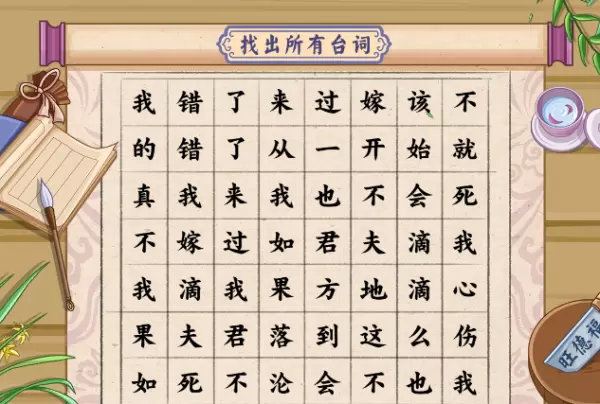 找出所有台词
我错了来过嫁该不
的错了从一开始就
真我来我也不会死
不嫁过如君夫滴我
我滴我果方地滴心
果夫君落到这么伤
如死不沦会不也我
旺德福